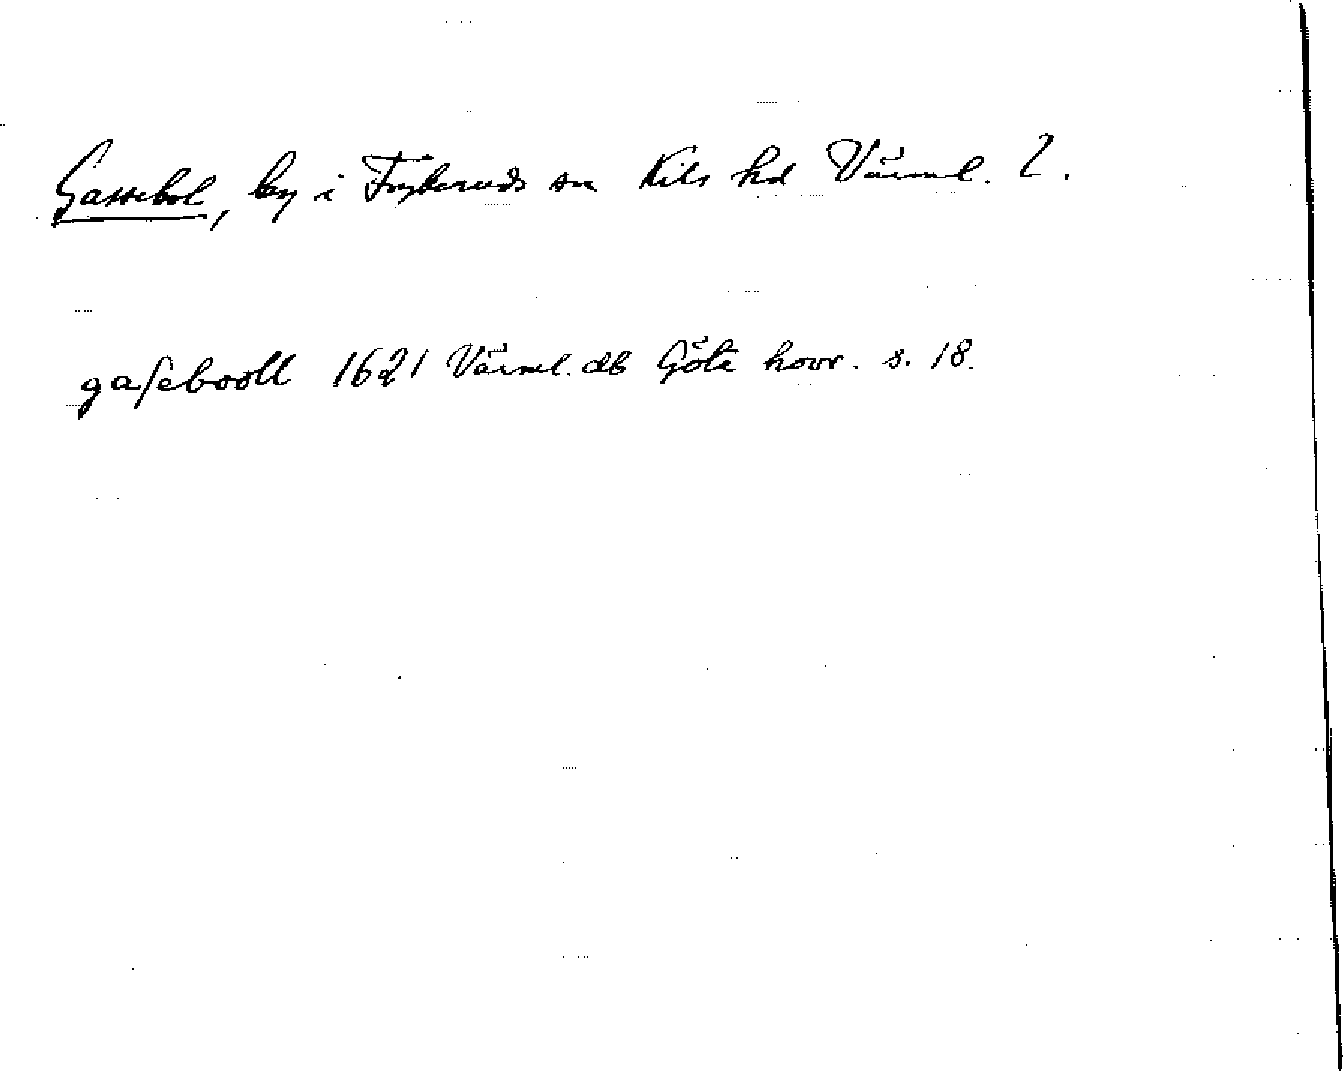 Gassebol, by i Frykeruds sn Kils hd Värml. l.
gaſebooll 1621 Värml. db Göta hovr. s. 18.